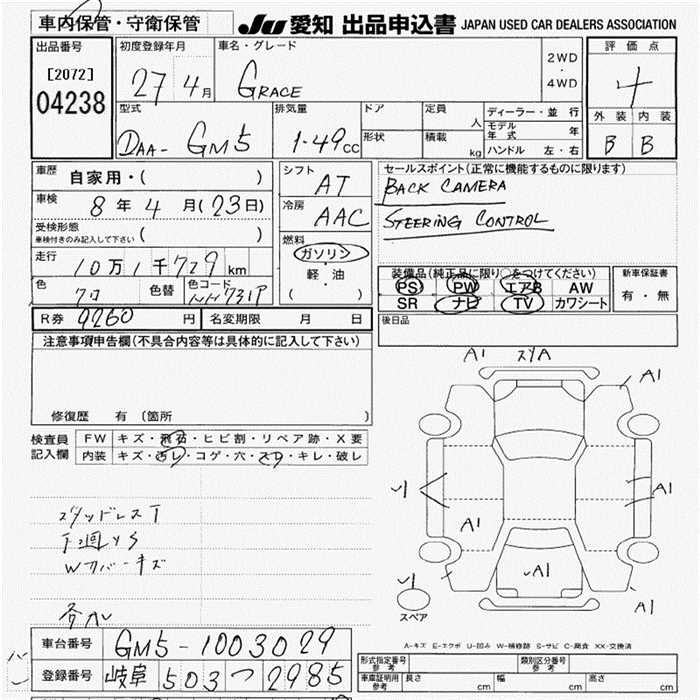 車内保管・守衛保管
JU 愛知 出品申込書 JAPAN USED CAR DEALERS ASSOCIATION
出品番号
[2072]
04238
初度登録年月
27 4月
車名・グレード
GRACE
2WD
・
4WD
評価点
4
外装 内装
B B
型式
DAA- GM5
排気量
1.49cc
ドア
形状
定員
人
積載
kg
ディーラー・並行
モデル年式 年
ハンドル 左・右
車歴 自家用・( )
車検 8年4月(23日)
受検形態
車検付きのみ記入して下さい ( )
走行 10万1千729km
色 クロ 色替 色コード NH731P
シフト AT
冷房 AAC
燃料
ガソリン
軽・油
( )
セールスポイント(正常に機能するものに限ります)
BACK CAMERA
STEERING CONTROL
装備品(純正品に限り○をつけてください)
PS PW エアB AW
SR ナビ TV カワシート
新車保証書
有・無
R券 9260円 名変期限 月 日
後日品
注意事項申告欄(不具合内容等は具体的に記入して下さい)
修復歴 有(箇所 )
検査員記入欄
FW キズ・飛石・ヒビ割・リペア跡・X要
内装 キズ・汚レ・コゲ・穴・スレ・キレ・破レ
スタッドレスT
下廻りS
Wカバーキズ
A1
A1
A1
A1
A1
A1
スペア
A-キズ E-エクボ U-凹み W-補修跡 S-サビ C-腐食 XX-交換済
車台番号 GM5-1003029
登録番号 岐阜 503 つ 2985
形式指定番号 参考
類別区分番号 参考
車庫証明用 参考 長さ cm 幅 cm 高さ cm